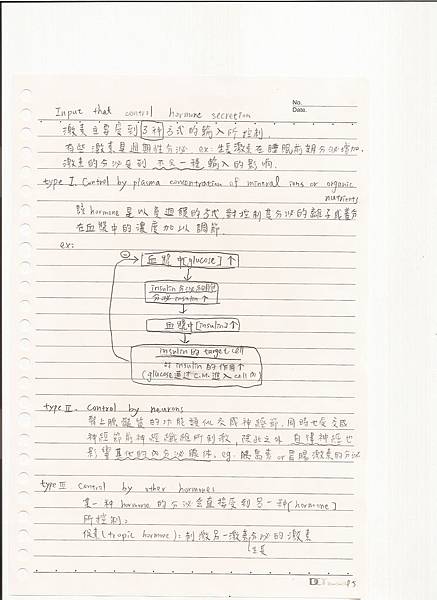 No.
Date.
Input that control hormone secretion
激素自要受到3种方式的輸入所控制.
有些激素具週期性分泌 ex: 生長激素在睡眠前期分泌增加.
激素的分泌受到不只一種輸入的影响.
type I. Control by plasma concentration of mineral ions or organic
nutrients
該hormone是以負迴饋的方式對控制其分泌的離子或養分
在血漿中的濃度加以調節.
ex:
血漿中[glucose]↑
insulin分泌細胞
分泌insulin↑
血漿中[insulin]↑
insulin的target cell
對insulin的作用↑
(glucose通过C.M.進入cell內)
type II. Control by neurons
腎上腺髓質的功能類似交感神經節, 同時也受交感
神經節前神經纖維所刺激, 除此之外, 自律神經也
影響其他的內分泌腺体, eg. 胰島素or胃腸激素的分泌
type III Control by other hormones
某一种hormone的分泌会直接受到另一种[hormone]
所控制;
促素(tropic hormone): 刺激另一激素分泌的激素
生長